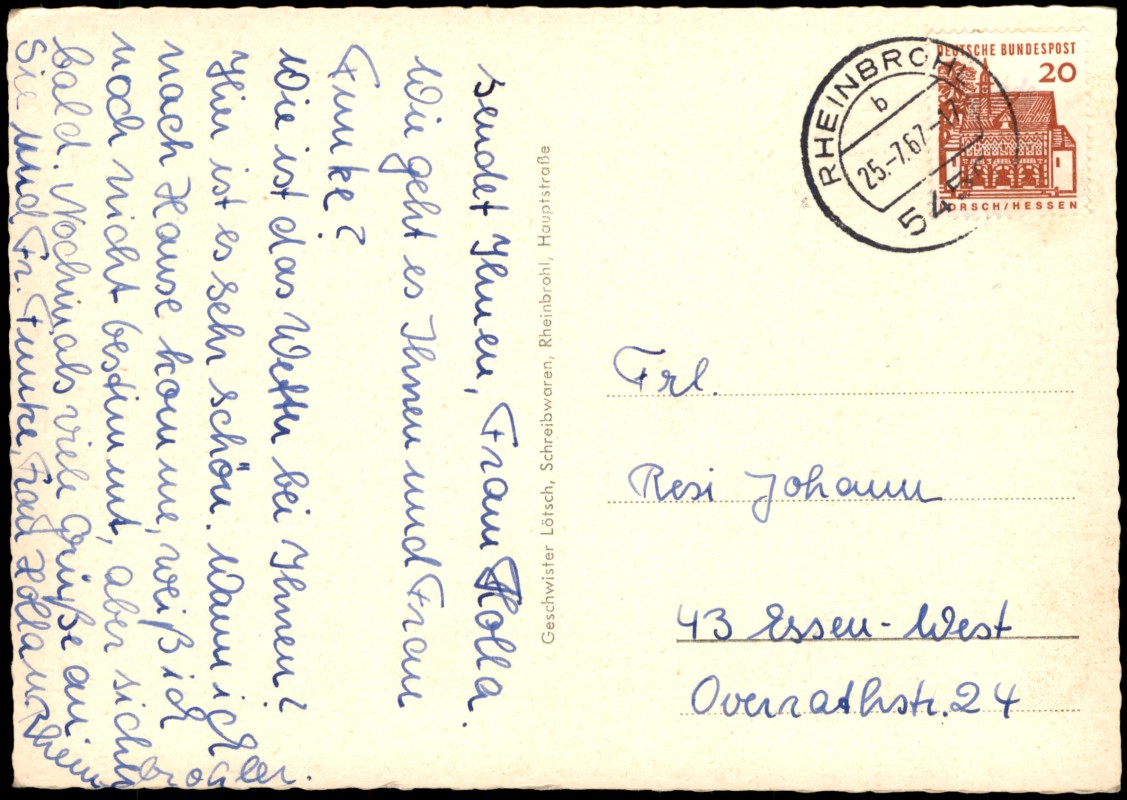 sendet Ihnen, Frau Holla.
Wie geht es Ihnen und Frau
Funke?
Wie ist das Wetter bei Ihnen?
Hier ist es sehr schön. Wann ich
nach Hause komme, weiß ich
noch nicht bestimmt, aber sicher
bald. Nochmals viele Grüße an
Sie und Fr. Funke, Frau Holla u. Rhein
brohler.
Geschwister Lötsch, Schreibwaren, Rheinbrohl, Hauptstraße
RHEINBROHL
b
25.-7.67-17
545
DEUTSCHE BUNDESPOST
20
LORSCH/HESSEN
Frl.
Resi Johann
43 Essen-West
Overrathstr. 24